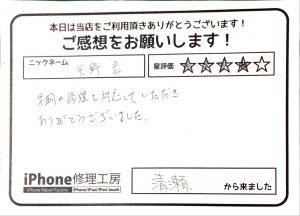 本日は当店をご利用頂きありがとうございます！
ご感想をお願いします！
ニックネーム
星評価 ☆☆☆☆☆
対応していただき
ありがとうございました。
iPhone修理工房
iPhone Repair Factory iPhone/iPad/iPod touch
清瀬 から来ました